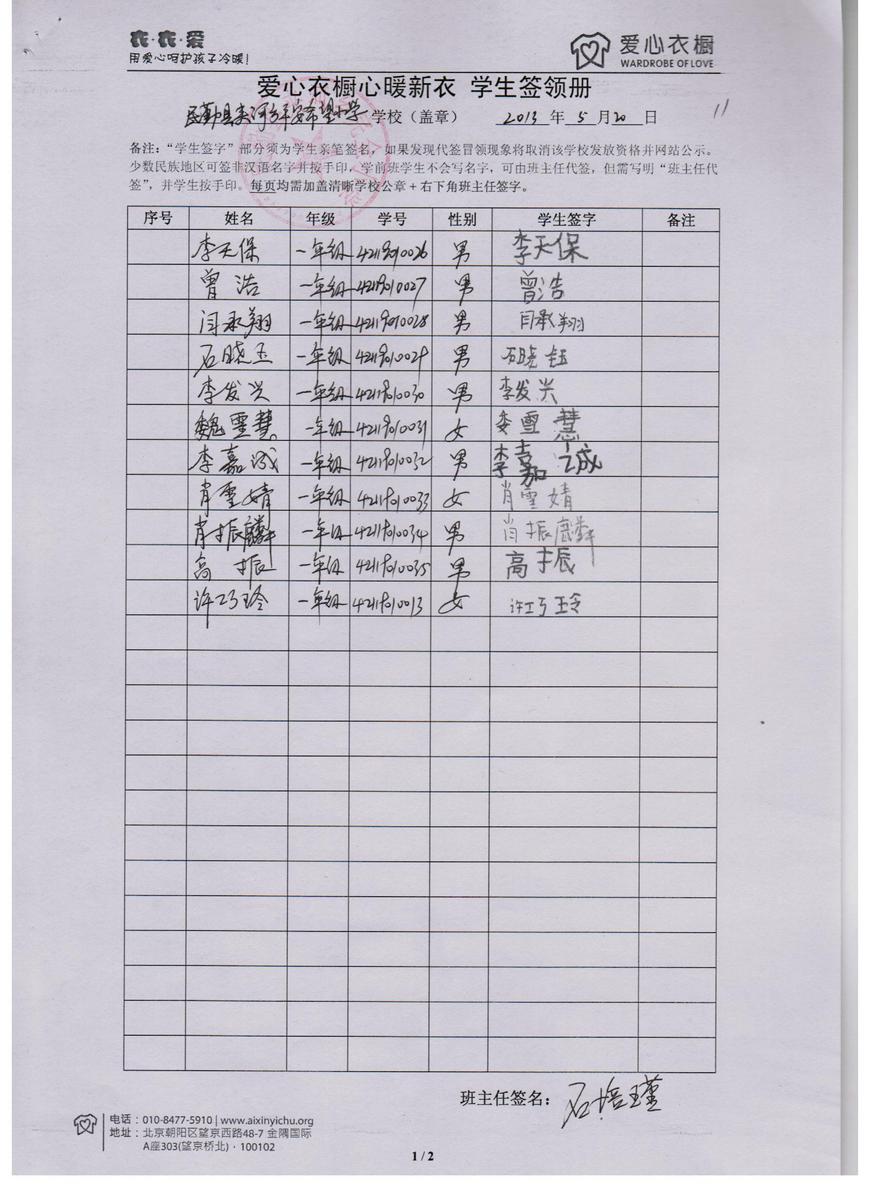 衣·衣·爱
用爱心呵护孩子冷暖!
爱心衣橱
WARDROBE OF LOVE
爱心衣橱心暖新衣 学生签领册
民勤县 平安希望小学 学校（盖章） 2013 年 5 月 20 日
11
备注：“学生签字”部分须为学生亲笔签名，如果发现代签冒领现象将取消该学校发放资格并网站公示。
少数民族地区可签非汉语名字并按手印，学前班学生不会写名字，可由班主任代签，但需写明“班主任代
签”，并学生按手印。每页均需加盖清晰学校公章+右下角班主任签字。
序号 姓名 年级 学号 性别 学生签字 备注
李天保 一年级 42119010026 男 李天保
曾浩 一年级 42119010027 男 曾浩
闫承翔 一年级 42119010028 男 闫承翔
石晓玉 一年级 42119010029 男 石晓钰
李发兴 一年级 42119010030 男 李发兴
魏雪慧 一年级 42119010031 女 委雪慧
李嘉诚 一年级 42119010032 男 李嘉诚
肖雪婧 一年级 42119010033 女 肖雪婧
肖振麟 一年级 42119010034 男 肖振麟
高振 一年级 42119010035 男 高振
许巧玲 一年级 42119010013 女 许巧玲
班主任签名： 石培瑾
电话：010-8477-5910 | www.aixinyichu.org
地址：北京朝阳区望京西路48-7 金隅国际
A座303(望京桥北)·100102
1 / 2